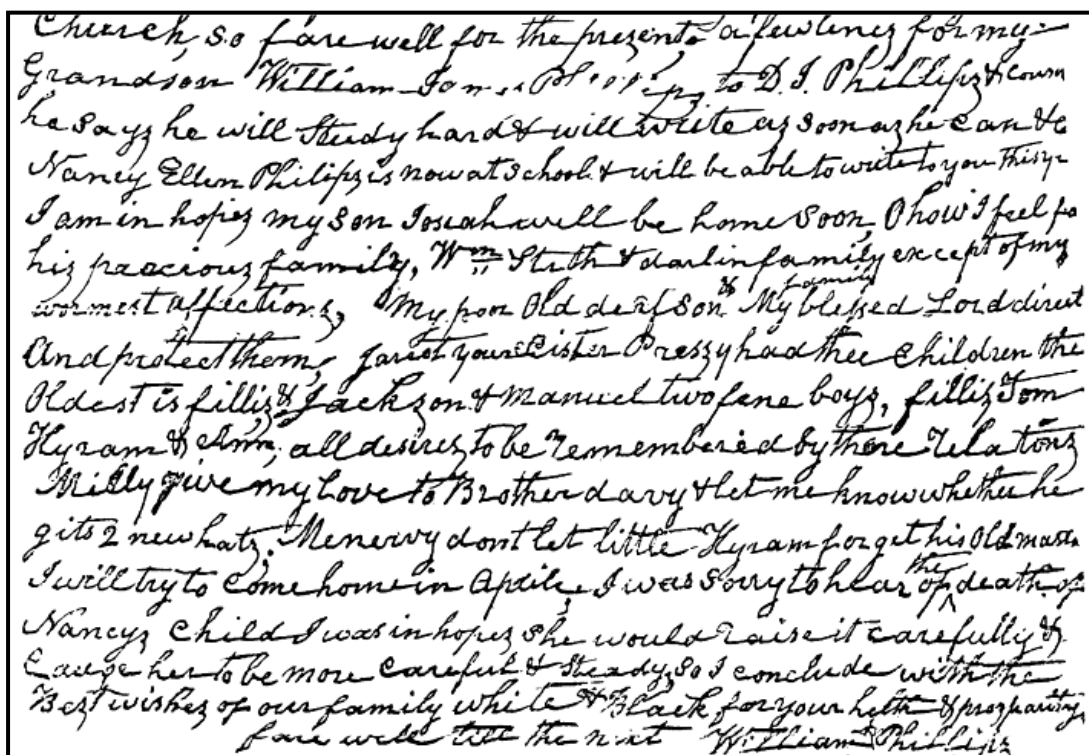 Church, so fare well for the prezent, a few linez for my
Grandson William to D. J. Phillipz &
he sayz he will Study hard & will write az soon az he can &
Nancy Ellen Philipz is now at School & will be able to write to you this
I am in hopez my son Josiah will be home soon, O how I feel fo
hiz preciouz family, Wm Stith & darlin family except of my
wormest affectionz, My poor Old deaf Son & family My blessed Lord direct
And protect them, your Sister Prezzy had thee Children the
Oldest is filliz & Jackzon & Manuel two fene boyz, filliz Tom
Hyram & Ann, all desirez to be remembered by there relationz
Milly give my love to Brother davy & let me know whether he
gits 2 new hatz. Menervy dont let little Hyram forget his Old
I will try to come home in Aprile, I was sorry to hear of the death of
Nancyz Child I was in hopez she would raise it carefully &
Cauze her to be more Careful & Steady, so I conclude with the
Best wishez of our family white & Black for your helth &
fare well till the next William Phillipz